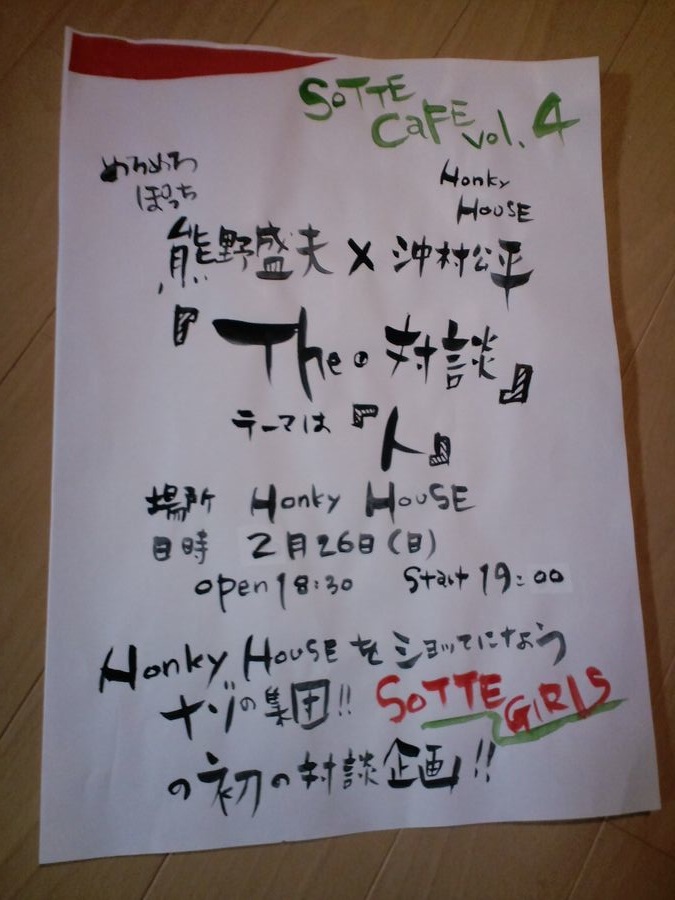 SOTTE
CaFE vol. 4
めろめろ
ぽっち
Honky
HOUSE
熊野盛夫 × 沖村公平
『The。対談』
テーマは『人』
場所 Honky HOUSE
日時 2月26日(日)
open 18:30 start 19:00
Honky HOUSE を ショッてになう
ナゾの集団!! SOTTE GIRLS
の初の対談企画!!